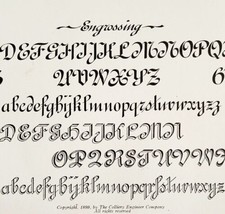 Engrossing
DEFGHIJKLMNOPQ
UVWXYZ 6
abcdefghijklmnopqrstuvwxyzz
DEFGHIJKLMN
OPQRSTUVWXYZ
abcdefghijklmnopqrsturstuvwxyz
Copyright, 1899, by The Colliery Engineer Company
All rights reserved